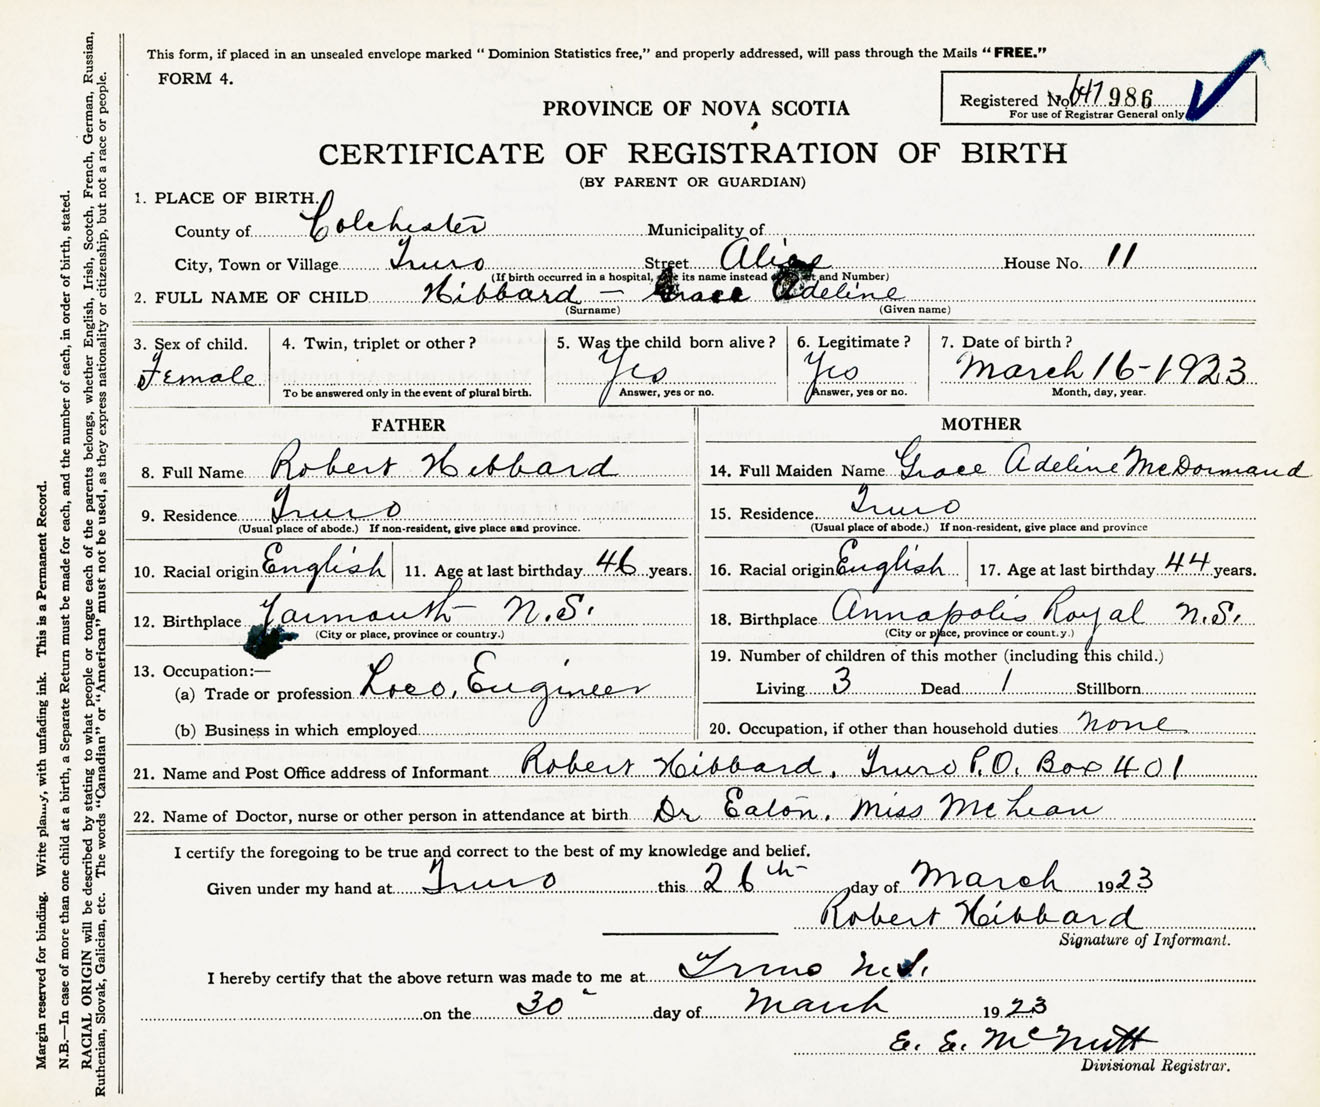 This form, if placed in an unsealed envelope marked “ Dominion Statistics free,” and properly addressed, will pass through the Mails “ FREE.”
FORM 4.
Registered No. 986
For use of Registrar General only
PROVINCE OF NOVA SCOTIA
CERTIFICATE OF REGISTRATION OF BIRTH
(BY PARENT OR GUARDIAN)
1. PLACE OF BIRTH.
County of Colchester Municipality of
City, Town or Village Truro Street Alice House No. 11
(If birth occurred in a hospital, its name instead and Number)
2. FULL NAME OF CHILD Hibbard — Grace Adeline
(Surname) (Given name)
3. Sex of child. 4. Twin, triplet or other? 5. Was the child born alive? 6. Legitimate? 7. Date of birth?
Female Yes Yes March 16-1923
To be answered only in the event of plural birth. Answer, yes or no. Answer, yes or no. Month, day, year.
FATHER
8. Full Name Robert Hibbard
9. Residence Truro
(Usual place of abode.) If non-resident, give place and province.
10. Racial origin English 11. Age at last birthday 46 years.
12. Birthplace Yarmouth N.S.
(City or place, province or country.)
13. Occupation:—
(a) Trade or profession Loco. Engineer
(b) Business in which employed
MOTHER
14. Full Maiden Name Grace Adeline McDormand
15. Residence Truro
(Usual place of abode.) If non-resident, give place and province
16. Racial origin English 17. Age at last birthday 44 years.
18. Birthplace Annapolis Royal N.S.
(City or place, province or count.y.)
19. Number of children of this mother (including this child.)
Living 3 Dead 1 Stillborn
20. Occupation, if other than household duties none
21. Name and Post Office address of Informant Robert Hibbard, Truro P.O. Box 401
22. Name of Doctor, nurse or other person in attendance at birth Dr Eaton, Miss McLean
I certify the foregoing to be true and correct to the best of my knowledge and belief.
Given under my hand at Truro this 26th day of March 1923
Robert Hibbard
Signature of Informant.
I hereby certify that the above return was made to me at Truro N.S.
on the 30 day of March 1923
E. E. McNutt
Divisional Registrar.
Margin reserved for binding. Write plainly, with unfading ink. This is a Permanent Record.
N.B.—In case of more than one child at a birth, a Separate Return must be made for each, and the number of each, in order of birth, stated.
RACIAL ORIGIN will be described by stating to what people or tongue each of the parents belongs, whether English, Irish, Scotch, French, German, Russian,
Ruthenian, Slovak, Galician, etc. The words “Canadian” or “American” must not be used, as they express nationality or citizenship, but not a race or people.